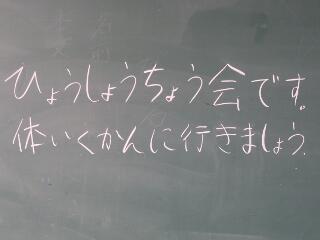 ひょうしょうちょう会です。
体いくかんに行きましょう。